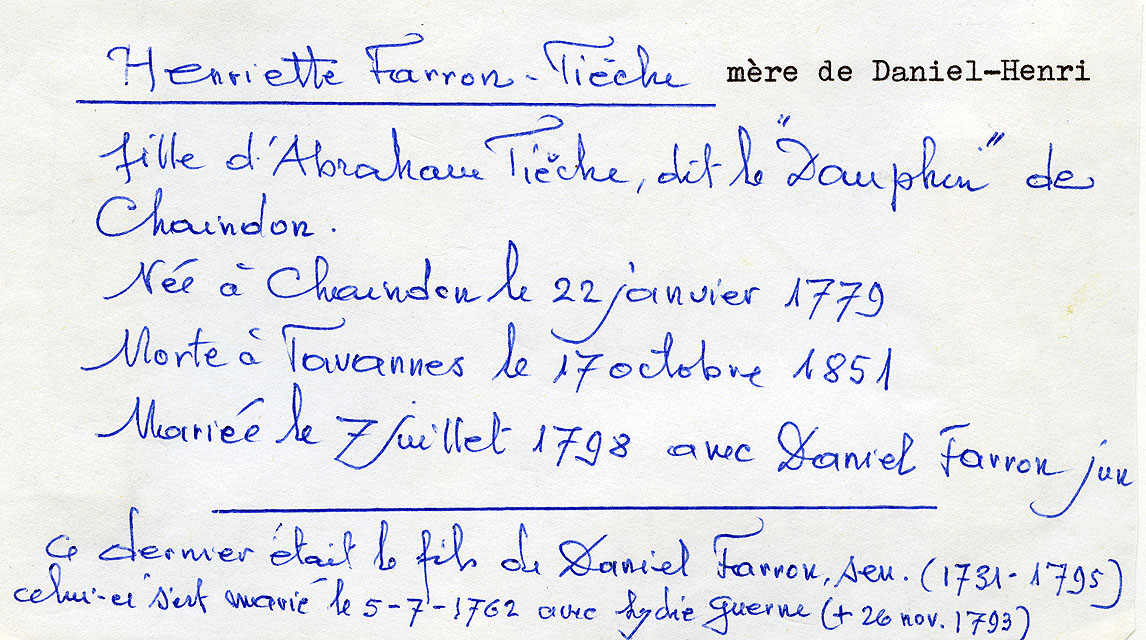 Henriette Farron-Tièche mère de Daniel-Henri
fille d'Abraham Tièche, dit le "Dauphin" de
Chaindon.
Née à Chaindon le 22 janvier 1779
Morte à Tavannes le 17 octobre 1851
Mariée le 7 juillet 1798 avec Daniel Farron jun
Ce dernier était le fils de Daniel Farron, sen. (1731-1795)
celui-ci s'est marié le 5-7-1762 avec Lydie Guerne (+ 26 nov. 1793)